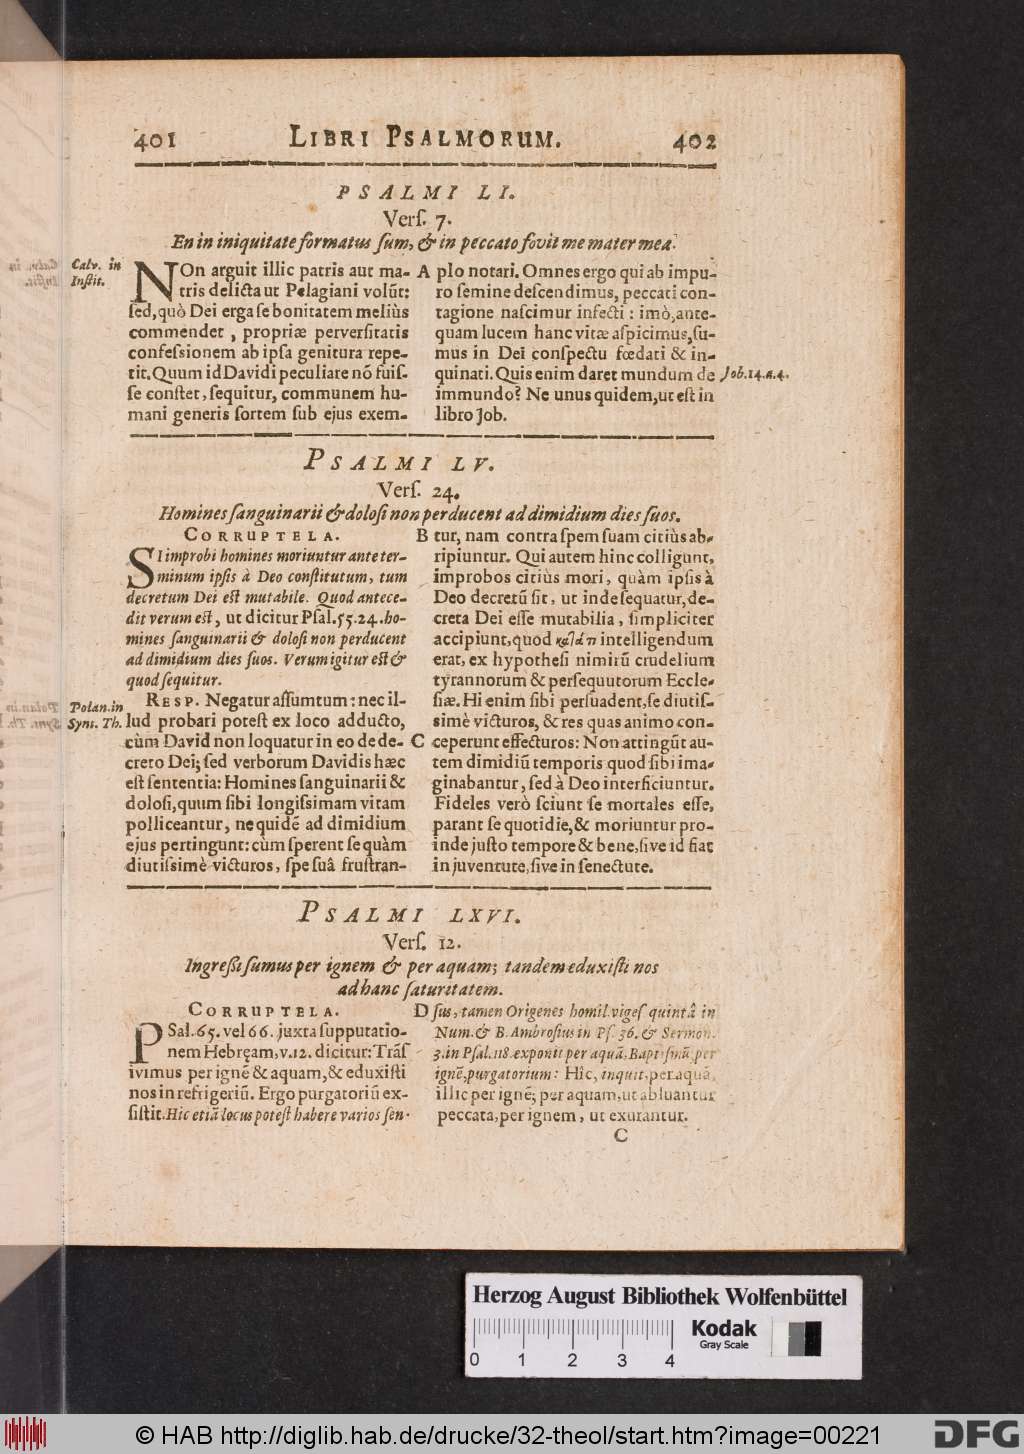 401 LIBRI PSALMORUM. 402
PSALMI LI.
Verſ. 7.
En in iniquitate formatus ſum, & in peccato fovit me mater mea.
Calv. in
Inſtit.
NOn arguit illic patris aut ma-
tris delicta ut Pelagiani volũt:
ſed, quò Dei erga ſe bonitatem meliùs
commendet, propriæ perverſitatis
confeſsionem ab ipſa genitura repe-
tit. Quum id Davidi peculiare nõ fuiſ-
ſe conſtet, ſequitur, communem hu-
mani generis ſortem ſub ejus exem-
A plo notari. Omnes ergo qui ab impu-
ro ſemine deſcendimus, peccati con-
tagione naſcimur infecti: imò, ante-
quam lucem hanc vitæ aſpicimus, ſu-
mus in Dei conſpectu fœdati & in-
quinati. Quis enim daret mundum de
immundo? Ne unus quidem, ut eſt in
libro Job.
Job. 14. a. 4.
PSALMI LV.
Verſ. 24.
Homines ſanguinarii & doloſi non perducent ad dimidium dies ſuos.
CORRUPTELA.
SI improbi homines moriuntur ante ter-
minum ipſis à Deo conſtitutum, tum
decretum Dei eſt mutabile. Quod antece-
dit verum eſt, ut dicitur Pſal. 55. 24. ho-
mines ſanguinarii & doloſi non perducent
ad dimidium dies ſuos. Verum igitur eſt &
quod ſequitur.
Polan. in
Synt. Th.
RESP. Negatur aſſumtum: nec il-
lud probari poteſt ex loco adducto,
cùm David non loquatur in eo de de-
creto Dei; ſed verborum Davidis hæc
eſt ſententia: Homines ſanguinarii &
doloſi, quum ſibi longiſsimam vitam
polliceantur, ne quidẽ ad dimidium
ejus pertingunt: cùm ſperent ſe quàm
diutiſsimè victuros, ſpe ſuâ fruſtran-
B tur, nam contra ſpem ſuam citiùs ab-
ripiuntur. Qui autem hinc colligunt,
improbos citiùs mori, quàm ipſis à
Deo decretũ ſit, ut inde ſequatur, de-
creta Dei eſſe mutabilia, ſimpliciter
accipiunt, quod κατάτι intelligendum
erat, ex hypotheſi nimirũ crudelium
tyrannorum & perſequutorum Eccle-
ſiæ. Hi enim ſibi perſuadent, ſe diutiſ-
simè victuros, & res quas animo con-
C ceperunt effecturos: Non attingũt au-
tem dimidiũ temporis quod ſibi ima-
ginabantur, ſed à Deo interficiuntur.
Fideles verò ſciunt ſe mortales eſſe,
parant ſe quotidie, & moriuntur pro-
inde juſto tempore & bene, ſive id fiat
in juventute, ſive in ſenectute.
PSALMI LXVI.
Verſ. 12.
Ingreſsi ſumus per ignem & per aquam; tandem eduxiſti nos
ad hanc ſaturitatem.
CORRUPTELA.
PSal. 65. vel 66. juxta ſupputatio-
nem Hebręam, v. 12. dicitur: Trãſ
ivimus per ignẽ & aquam, & eduxiſti
nos in refrigeriũ. Ergo purgatoriũ ex-
ſiſtit. Hic etiã locus poteſt habere varios ſen-
D ſus, tamen Origenes homil. vigeſ quintâ in
Num. & B. Ambroſius in Pſ. 36. & Sermon.
3. in Pſal. 118. exponit per aquã, Baptiſmũ, per
ignẽ, purgatorium: Hîc, inquit, per aquã,
illîc per ignẽ; per aquam, ut abluantur
peccata, per ignem, ut exurantur.
C
Herzog August Bibliothek Wolfenbüttel
0 1 2 3 4
Kodak
Gray Scale
© HAB http://diglib.hab.de/drucke/32-theol/start.htm?image=00221
DFG